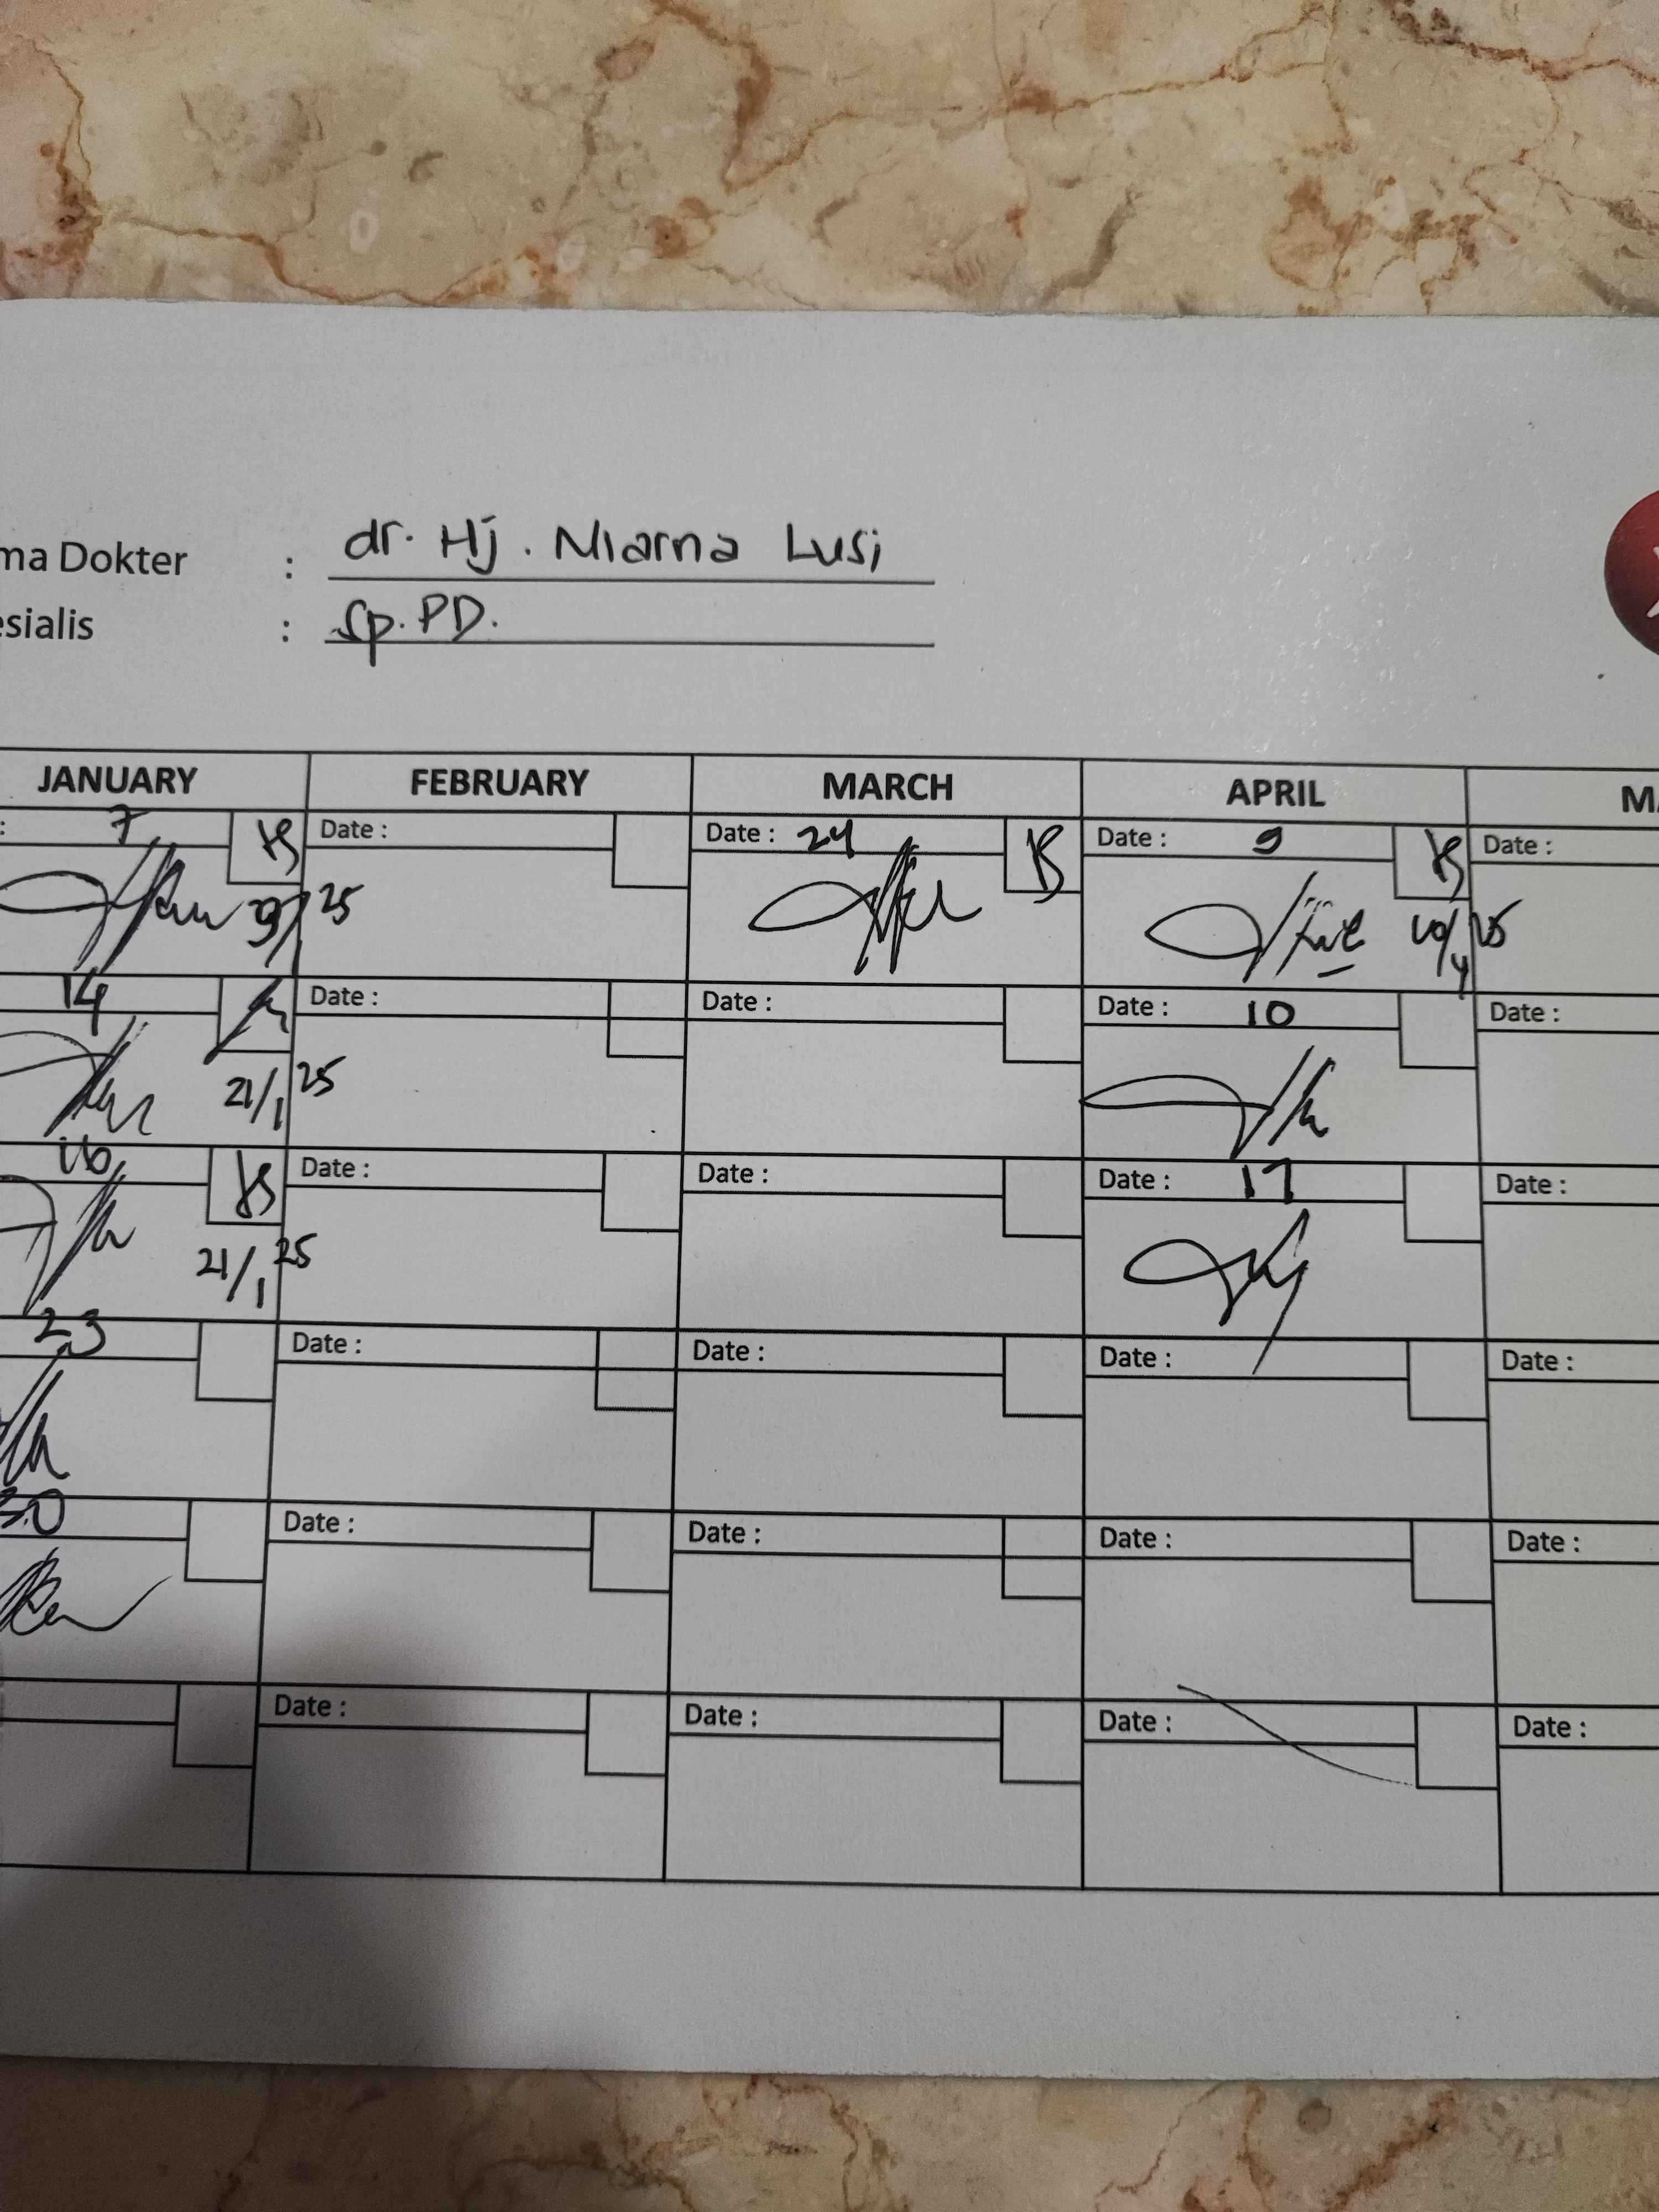 ma Dokter : dr. Hj. Niarna Lusi
esialis : Sp.PD.
JANUARY FEBRUARY MARCH APRIL
: 7 Date : Date : 24 Date : 9 Date :
25
14 Date : Date : Date : 10 Date :
21/1 25
16 Date : Date : Date : 17 Date :
21/1 25
23 Date : Date : Date : Date :
30 Date : Date : Date : Date :
Date : Date : Date : Date :